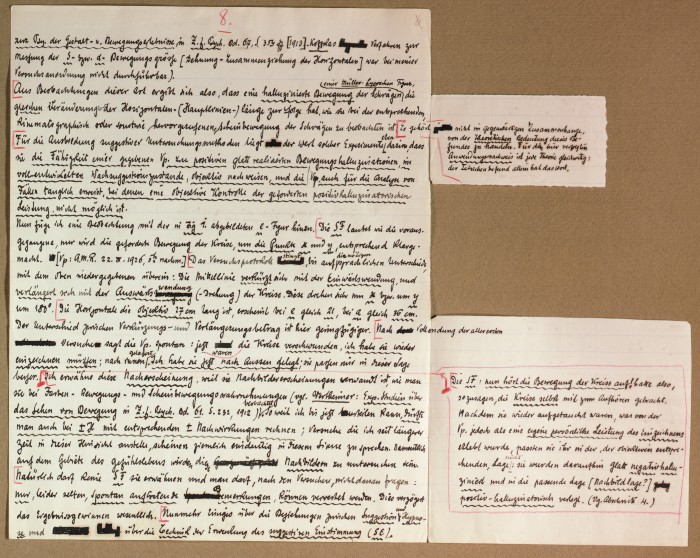 8.
zur Psy. der Gestalt- u. Bewegungserlebnisse, in Z. f. Psych. Bd. 67, § 353 ff [1913]. Verfahren zur
Messung der S- bzw. a- Bewegungsgröße [Dehnung-Zusammenziehung der Horizontalen] war bei meiner
Versuchsanordnung nicht durchführbar).
(einer Müller-Lyerschen Figur,
Aus Beobachtungen dieser Art ergibt sich also, dass eine halluzinierte Bewegung der Schrägen die
gleichen Veränderungen der Horizontalen- (Hauptlinien-) länge zur Folge hat, wie die bei der entsprechenden,
kinematographisch oder sonstwie, hervorgerufenen, Scheinbewegung der Schrägen zu beobachten ist.
Für die Ausbildung suggestiver Untersuchungsmethoden liegt der Wert solcher Experimente darin, dass
sie die Fähigkeit einer gegebenen Vp. zu positiven glatt realisierten Bewegungshalluzinationen im
voll entwickelten Wachsuggestionszustande, objektiv nachweisen, und die Vp. auch für die Analyse von
Fällen tauglich erweist, bei denen eine objektive Kontrolle der geforderten positiv halluzinatorischen
Leistung, nicht möglich ist.
Nun füge ich eine Beobachtung mit der in Fig 1. abgebildeten e-Figur hinzu. Die SF lautet wie die voraus-
gegangene, nur wird die geforderte Bewegung der Kreise, um die Punkte x und y, entsprechend klarge-
macht. [Vp: A.M.R. 22. III. 1926, 5h nachm.] Das Versuchsprotokoll stimmt bis auf sprachliche Unterschiede,
mit dem oben niedergegebenen überein: Die Mittellinie verkürzt sich mit der Einwärtswendung, und
verlängert sich mit der Auswärtswendung (-Drehung) der Kreise. Diese drehen sich um x bzw. um y
um 180°. Die Horizontale die objektiv 27 cm lang ist, erscheint bei e gleich 21, bei a gleich 36 cm.
Der Unterschied zwischen Verkürzungs- und Verlängerungsbetrag ist hier geringfügiger. Nach Vollendung der allerersten
Versuche sagt die Vp. spontan: jetzt die Kreise verschwunden, ich habe sie wieder
einzeichnen müssen; nach vorne, ich habe sie jetzt nach Aussen gelegt, sie passen nur in dieser Lage
besser. Ich erwähne diese Nacherscheinung, weil sie Nachbilderscheinungen verwandt ist, wie man
sie bei Farben- Bewegungs- und Scheinbewegungswahrnehmungen (vgl. Wertheimer: Exp. Studien über
das Sehen von Bewegung in Z. f. Psych. Bd 61. S. 232, 1912) So weit ich bis jetzt beurteilen kann, dürfte
man auch bei ± H mit entsprechenden ± Nachwirkungen rechnen; Versuche die ich seit längerer
Zeit in dieser Hinsicht anstelle, scheinen ziemlich eindeutig in diesem Sinne zu sprechen. Namentlich
auf dem Gebiete des Gefühlslebens wären die Nachbildern zu untersuchen sein.
Natürlich darf keine SF sie erwähnen und man darf, nach den Versuchen, nicht danach fragen:
nur, leider selten, spontan auftretende Bemerkungen, können verwertet werden. Dies verzögert
das Ergebnisgewinnen wesentlich. Nunmehr Einiges über die Beziehungen zwischen Suggestion u. Hypno-
se und über die Technik der Erweckung der suggestiven Einstimmung (SE).
Es gehört nicht in gegenwärtigen Zusammenhange,
von der theoretischen Bedeutung dieses Be-
fundes zu handeln. Für den hier verfolgten
Anwendungsnachweis ist jede Theorie gleichgültig:
der Tatsachenbefund allein hat das Wort.
Die SF: nun hört die Bewegung der Kreise auf! hatte also,
sozusagen, die Kreise selbst mit zum Aufhören gebracht.
Nachdem sie wieder aufgetaucht waren, was von der
Vp. jedoch als eine eigene persönliche Leistung des Einzeichnens
erlebt wurde, passten sie ihr in der, der objektiven entspre-
chenden, Lage; sie wurden daraufhin glatt negativ hallu-
ziniert und in die passende Lage [Nachbildlage?]
positiv-halluzinatorisch verlegt. (Vg. Abschnitt 4.)